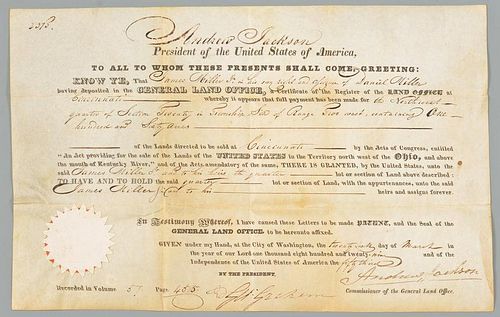 Andrew Jackson
President of the United States of America,
TO ALL TO WHOM THESE PRESENTS SHALL COME, GREETING:
KNOW YE, That James Miller Jr in his own right and of Daniel Miller
having deposited in the GENERAL LAND OFFICE, a Certificate of the Register of the LAND OFFICE at
Cincinnati whereby it appears that full payment has been made for the Northwest
quarter of Section Twenty in Township of Range west, containing One
hundred and Sixty acres
of the Lands directed to be sold at Cincinnati by the Acts of Congress, entitled
"An Act providing for the sale of the Lands of the UNITED STATES in the Territory north west of the Ohio, and above
the mouth of Kentucky River," and of the Acts amendatory of the same, THERE IS GRANTED, by the United States, unto the
said James Miller Jr and to his heirs the quarter lot or section of Land above described:
TO HAVE AND TO HOLD the said quarter lot or section of Land, with the appurtenances, unto the said
James Miller Jr and to his heirs and assigns forever.
In Testimony Whereof, I have caused these Letters to be made PATENT, and the Seal of the
GENERAL LAND OFFICE to be hereunto affixed.
GIVEN under my Hand, at the City of Washington, the day of March in
the year of our Lord one thousand eight hundred and twenty nine and of the
Independence of the United States of America the fifty third
BY THE PRESIDENT, Andrew Jackson
Recorded in Volume 5 Page 455 Geo Graham Commissioner of the General Land Office.